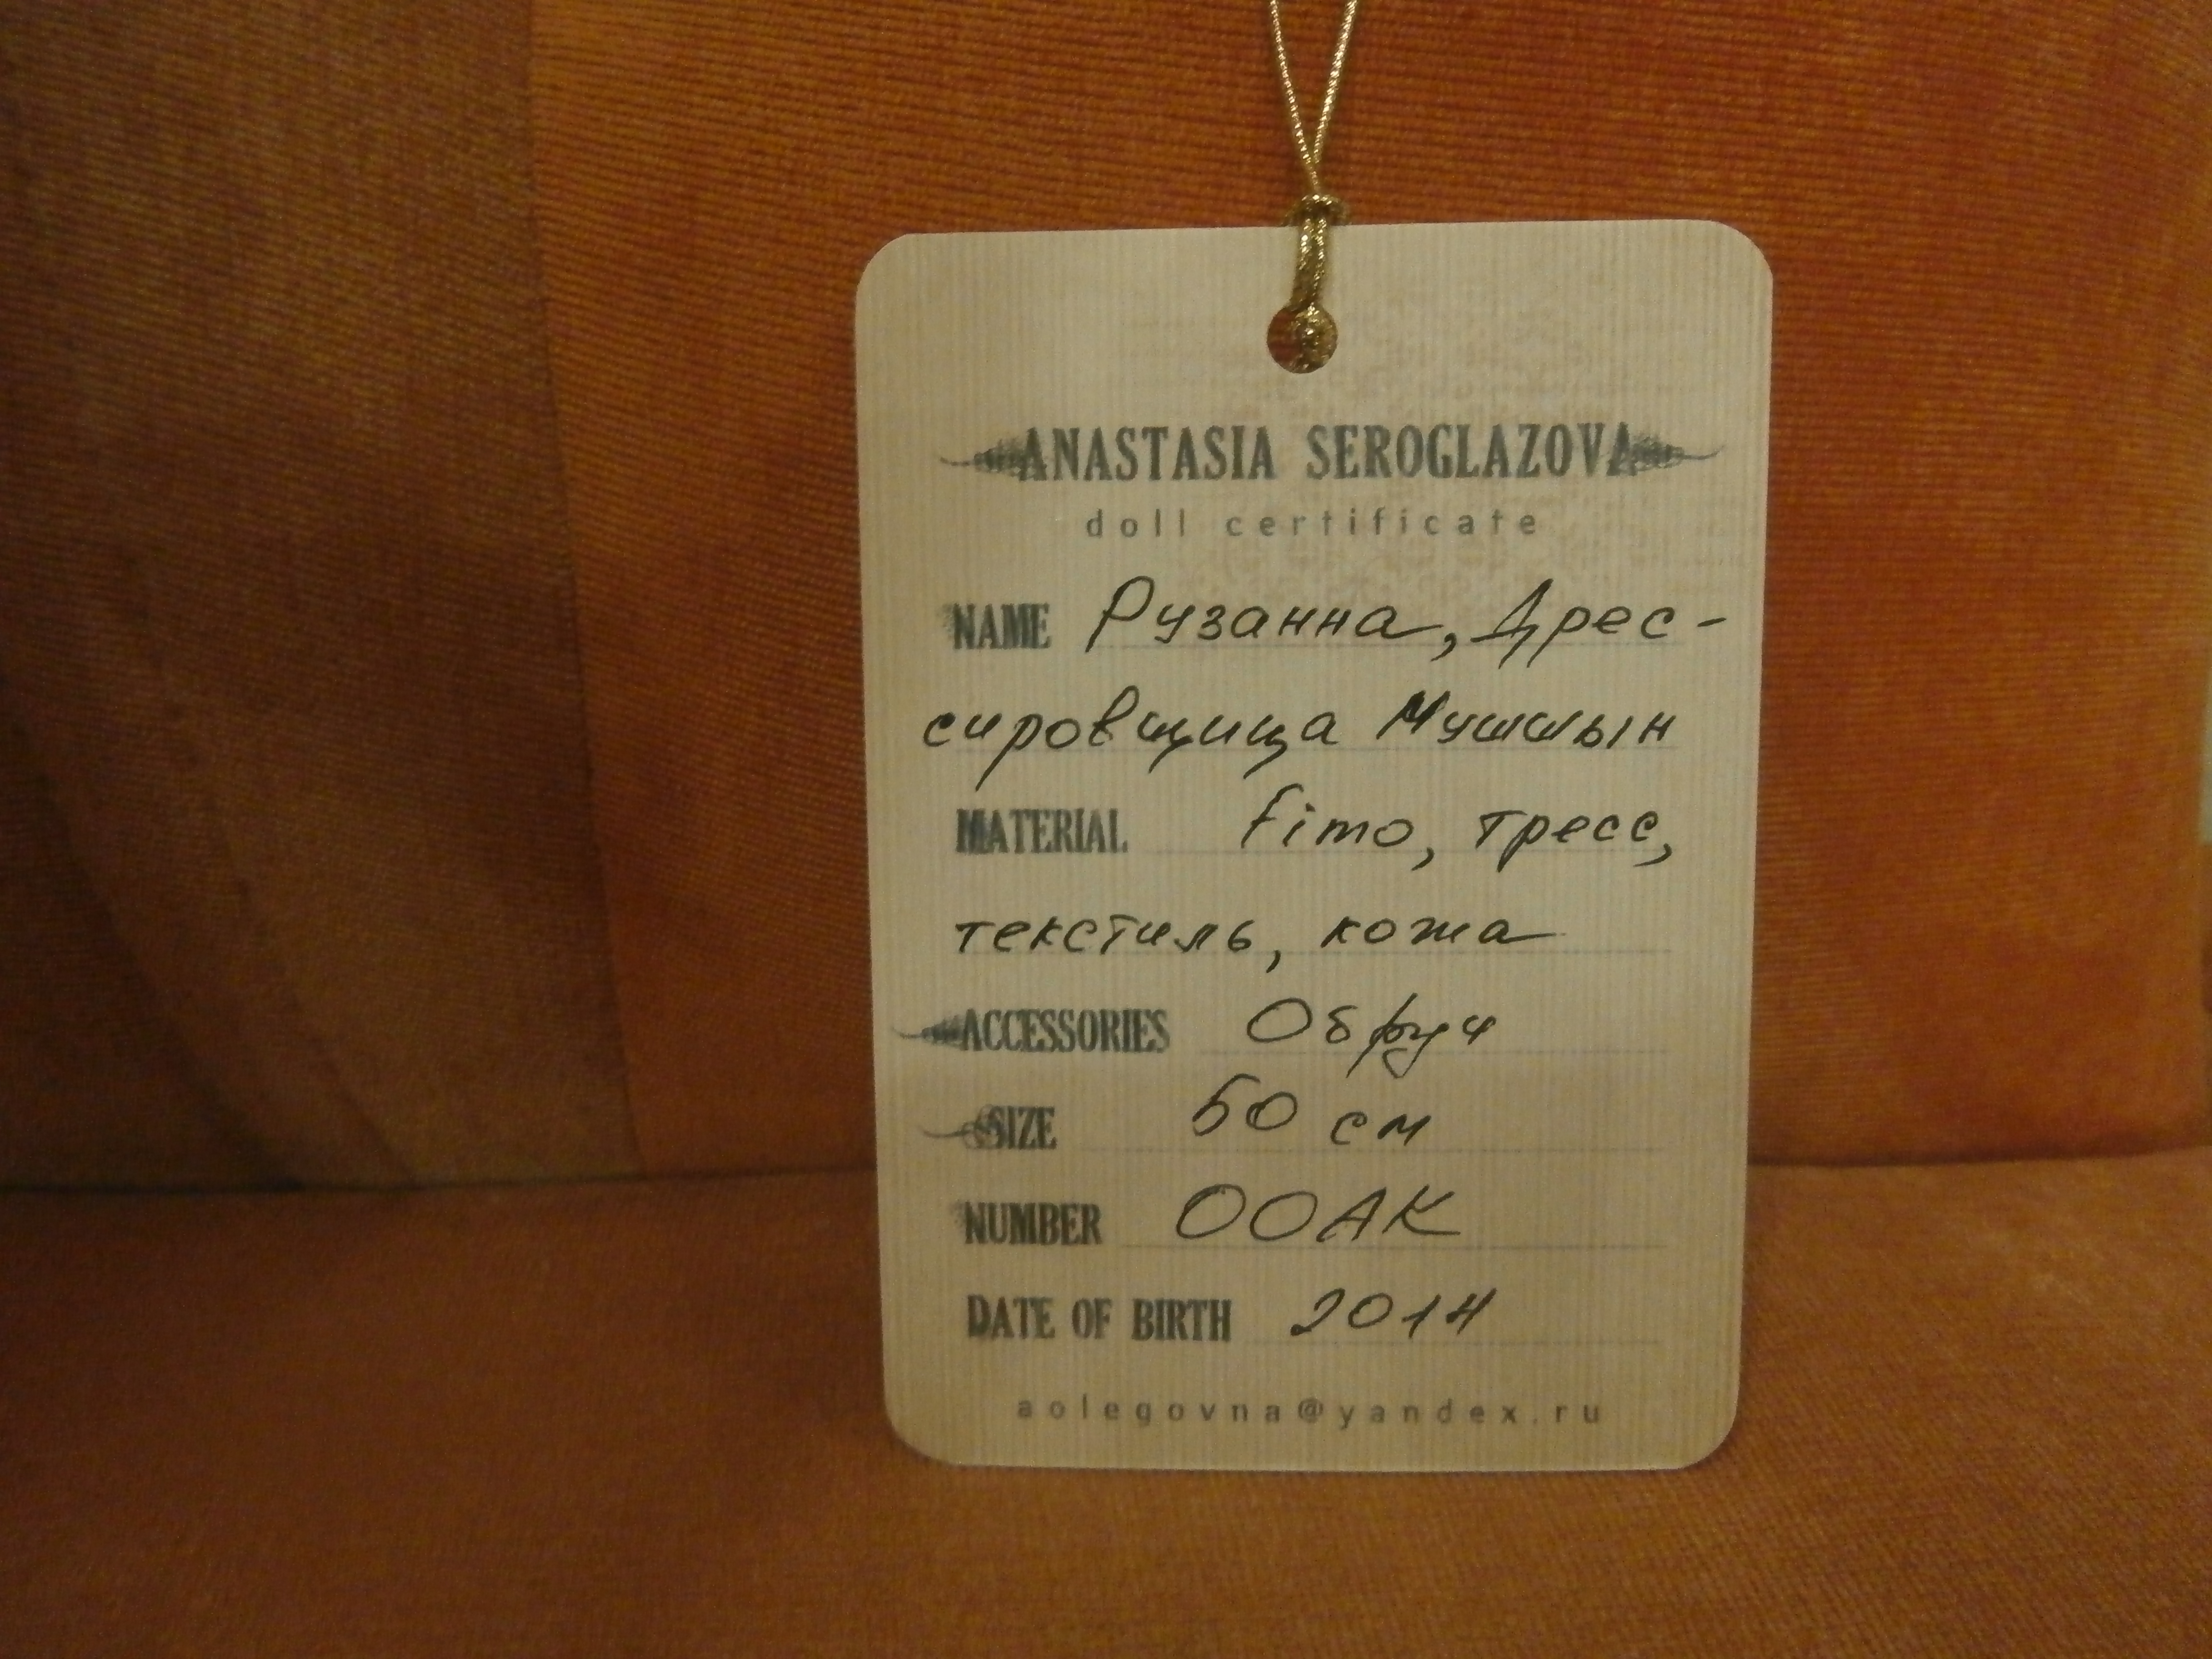 ANASTASIA SEROGLAZOVA
doll certificate
NAME Рузанна, Дрес-
сировщица Мушшын
MATERIAL fimo, тресс,
текстиль, кожа
ACCESSORIES Обруч
SIZE 50 см
NUMBER OOAK
DATE OF BIRTH 2014
aolegovna@yandex.ru